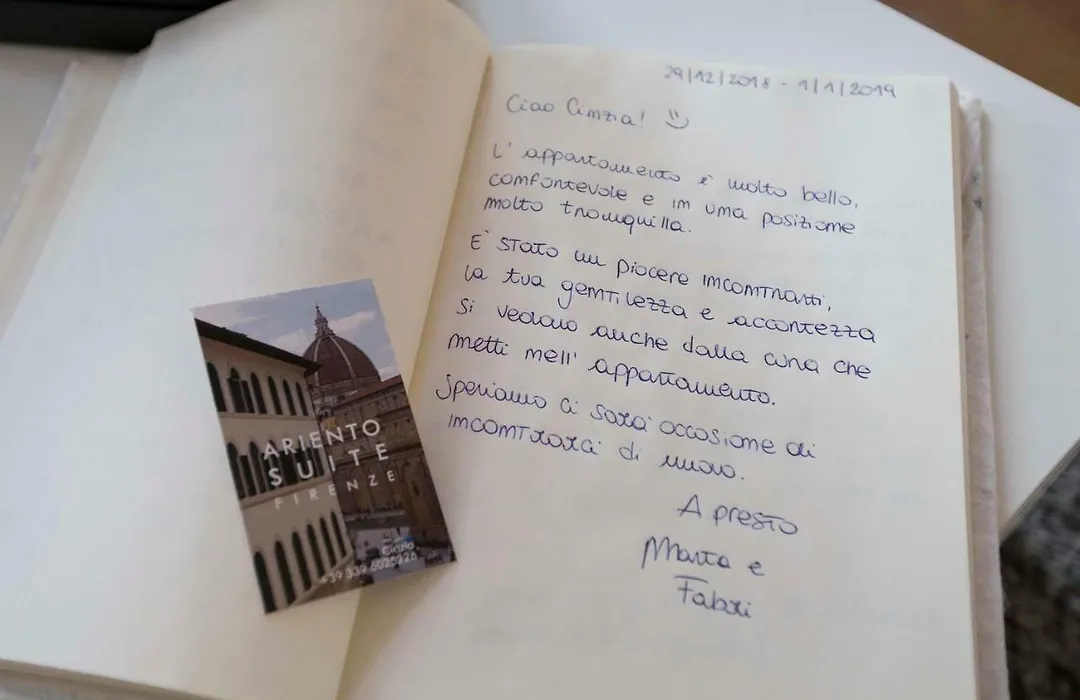 29/12/2018 - 1/1/2019
Ciao Cinzia! :)
L'appartamento è molto bello,
confortevole e in una posizione
molto tranquilla.
E' stato un piacere incontrarti,
la tua gentilezza e accortezza
si vedono anche dalla cura che
metti nell'appartamento.
Speriamo ci sarà occasione di
incontrarci di nuovo.
A presto
Marta e
Fabri
ARIENTO
SUITE
FIRENZE
Cinzia
+39 339 6025226